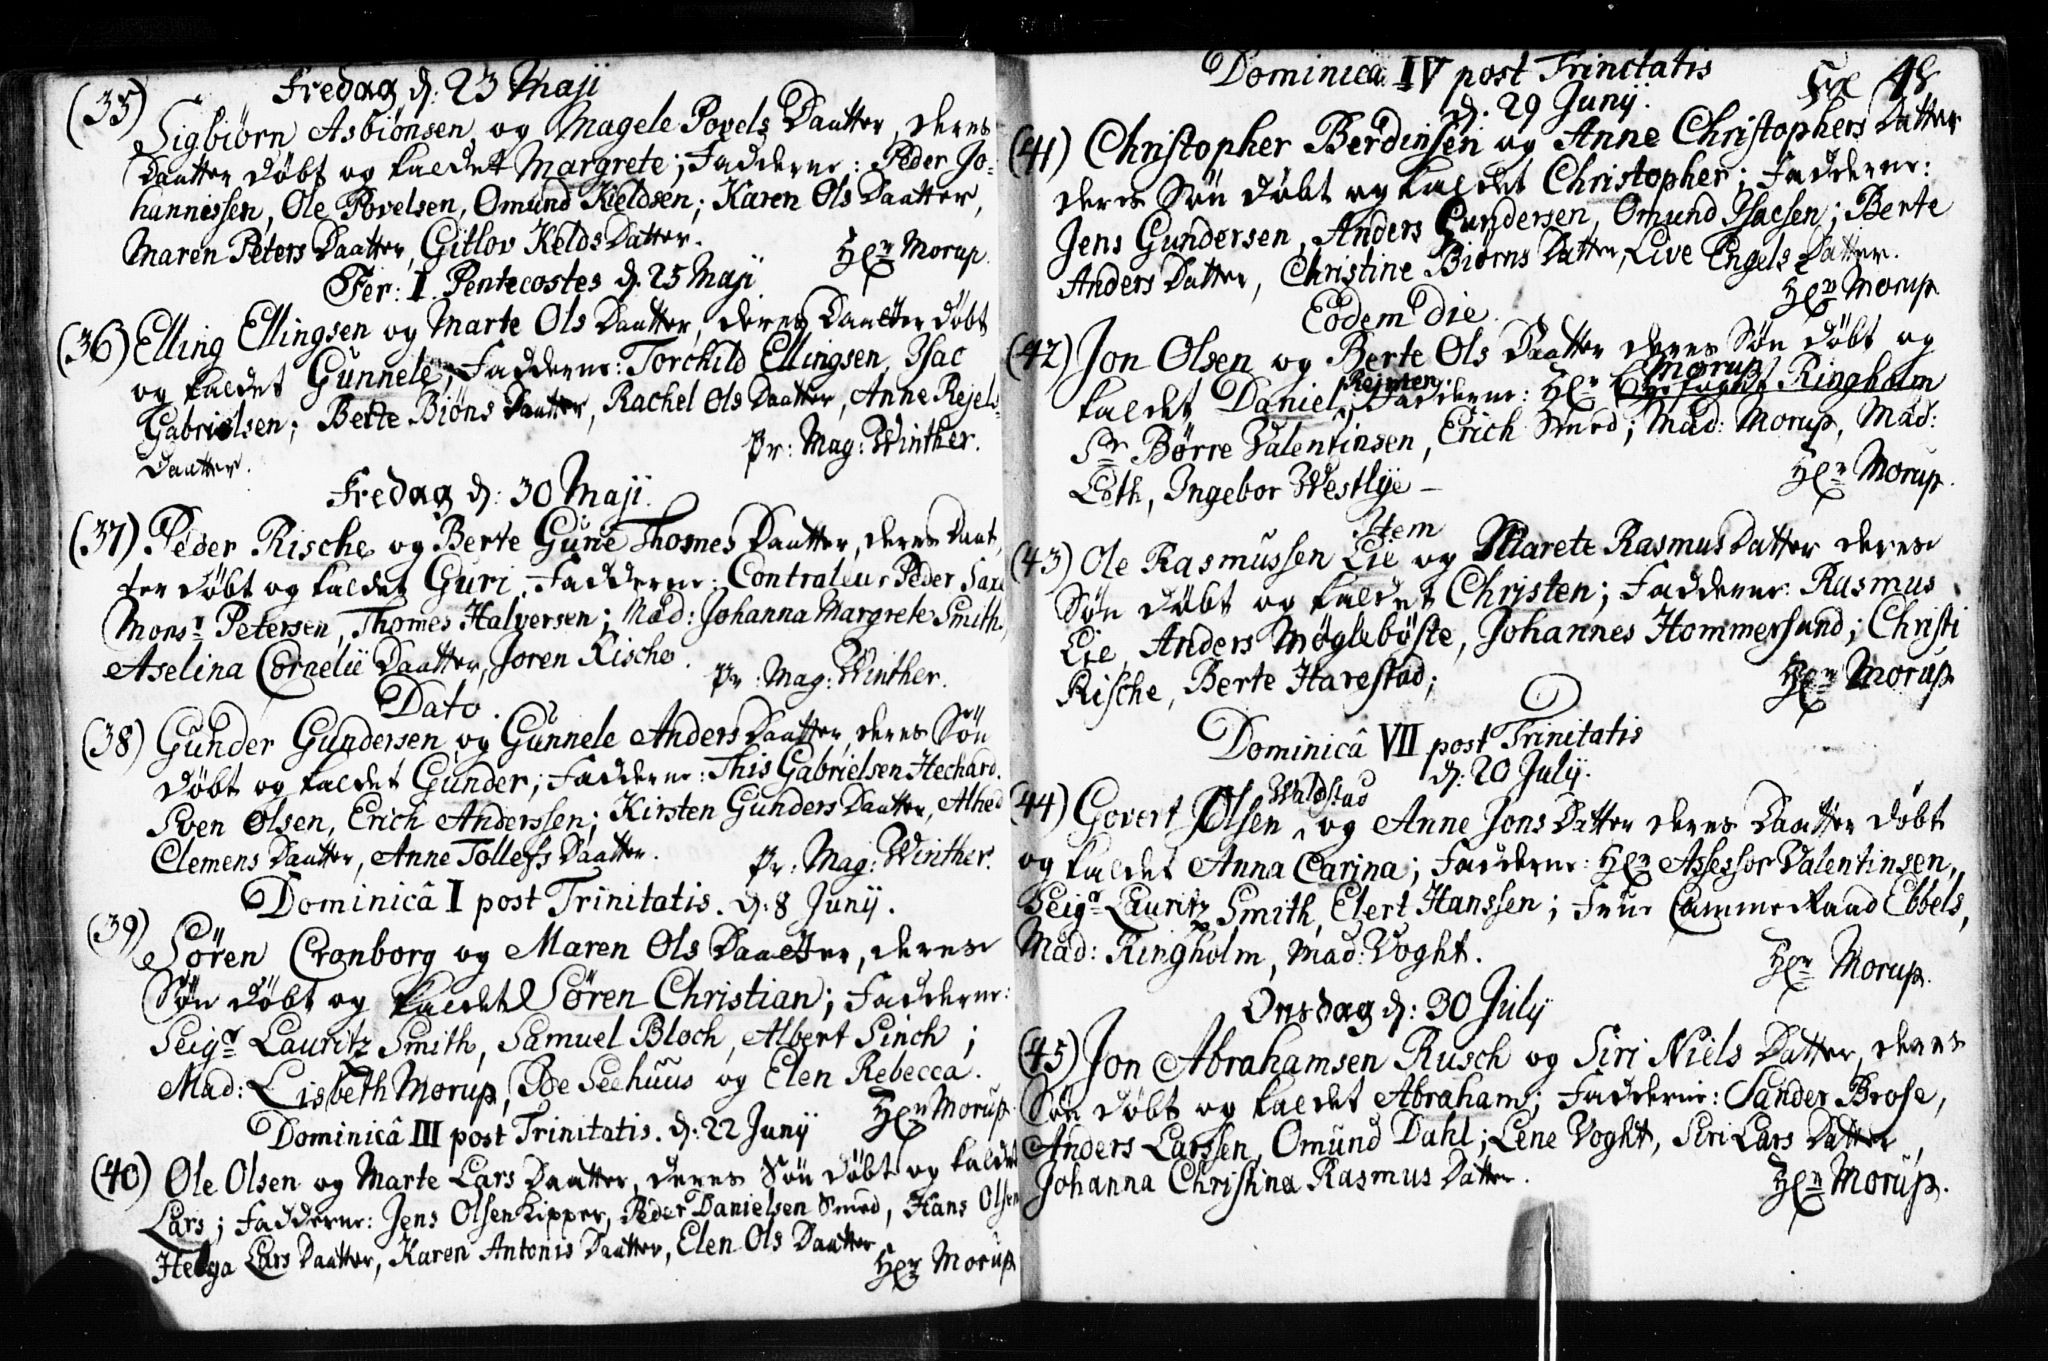 Fredag d: 23 Maji
(35) Sigbiørn Asbiønsen og Magele Povels Daatter, deres
Daatter døbt og kaldet Margrete; Fadderne: Peder Jo-
hannessen, Ole Povelsen, Omund Kieldsen; Karen Ols Daatter,
Maren Peters Daatter, Gitlov Kelds Datter.
Hr: Morup.
Fer: I Pentecostes d. 25 Maji
(36) Elling Ellingsen og Marte Ols Daatter, deres Daatter døbt
og kaldet Gunnele; Fadderne: Torchild Ellingsen, Isac
Gabrielsen; Berte Biøns Daatter, Rachel Ols Daatter, Anne Rejels-
Daatter.
pr: Mag: Winther.
Fredag d: 30 Maji.
(37) Peder Rische og Berte Gurie Thomes Daatter, deres Daat-
ter døbt og kaldet Guri, Fadderne: Contraleur Peder Saxe
Monsr Petersen, Thomes Halversen; Mad: Johanna Margrete Smith,
Aselina Cornelii Daatter, Joren Rische.
pr: Mag: Winther.
Dato.
(38) Gunder Gundersen og Gunnele Anders Daatter, deres Søn
døbt og kaldet Gunder; Fadderne: This Gabrielsen Hechard.
Sven Olsen, Erich Anderssen; Kirsten Gunders Daatter, Alhed
Clemens Daatter, Anne Tollefs Daatter.
pr: Mag: Winther.
Dominicâ I post Trinitatis. d: 8 Junij.
(39) Søren Cronborg og Maren Ols Daatter, deres
Søn døbt og kaldet Søren Christian; Fadderne:
Seigr Lauritz Smith, Samuel Bloch, Albert Sinch;
Mad: Lisbeth Morup, Boe Seehuus og Elen Rebecca.
Hr: Morup
Dominicâ III post Trinitatis. d: 22 Junij
(40) Ole Olsen og Marte Lars Daatter, deres Søn døbt og kaldet
Lars; Fadderne: Jens Olsen Kipper, Peder Danielsen Smed, Hans Olsen
Helga Lars Daatter, Karen Antonis Daatter, Elen Ols Daatter
Hr: Morup
Dominicâ IV post Trinitatis
48
d: 29 Junij.
(41) Christopher Berdinsen og Anne Christophers Datter
deres Søn døbt og kaldet Christopher; Fadderne:
Jens Gundersen, Anders Gundersen, Omund Isacsen; Berte
Anders Datter, Christine Biørns Datter, Live Engels Datter.
Hr: Morup
Eodem die.
(42) Jon Olsen og Berte Ols Daatter deres Søn døbt og
kaldet Daniel Rejmen; Fadderne: Hr Morup Ringholm
Sr Børre Valentinsen, Erich Smed; Mad: Morup, Mad:
Loth, Ingebor Westlye —
Hr: Morup.
Item
(43) Ole Rasmussen Lie og Marete Rasmus Datter deres
Søn døbt og kaldet Christen; Fadderne: Rasmus
Lie, Anders Møglebøste, Johannes Hommersand; Christi
Rische, Berte Harestad;
Hr: Morup
Dominicâ VII post Trinitatis
d: 20 July.
(44) Govert Olsen Waldstad og Anne Jons Datter deres Daatter døbt
og kaldet Anna Carina; Fadderne: Hr: Assessor Valentinsen,
Seigr Lauritz Smith, Elert Hanssen; Frue Cammer Raad Ebbels,
Mad: Ringholm, Mad: Voght.
Hr: Morup.
Onsdag d: 30 July
(45) Jon Abrahamsen Rusch og Siri Niels Datter, deres
Søn døbt og kaldet Abraham; Fadderne: Sander Brose,
Anders Larssen, Omund Dahl; Lene Voght, Siri Lars Datter,
Johanna Christina Rasmus Datter.
Hr: Morup.